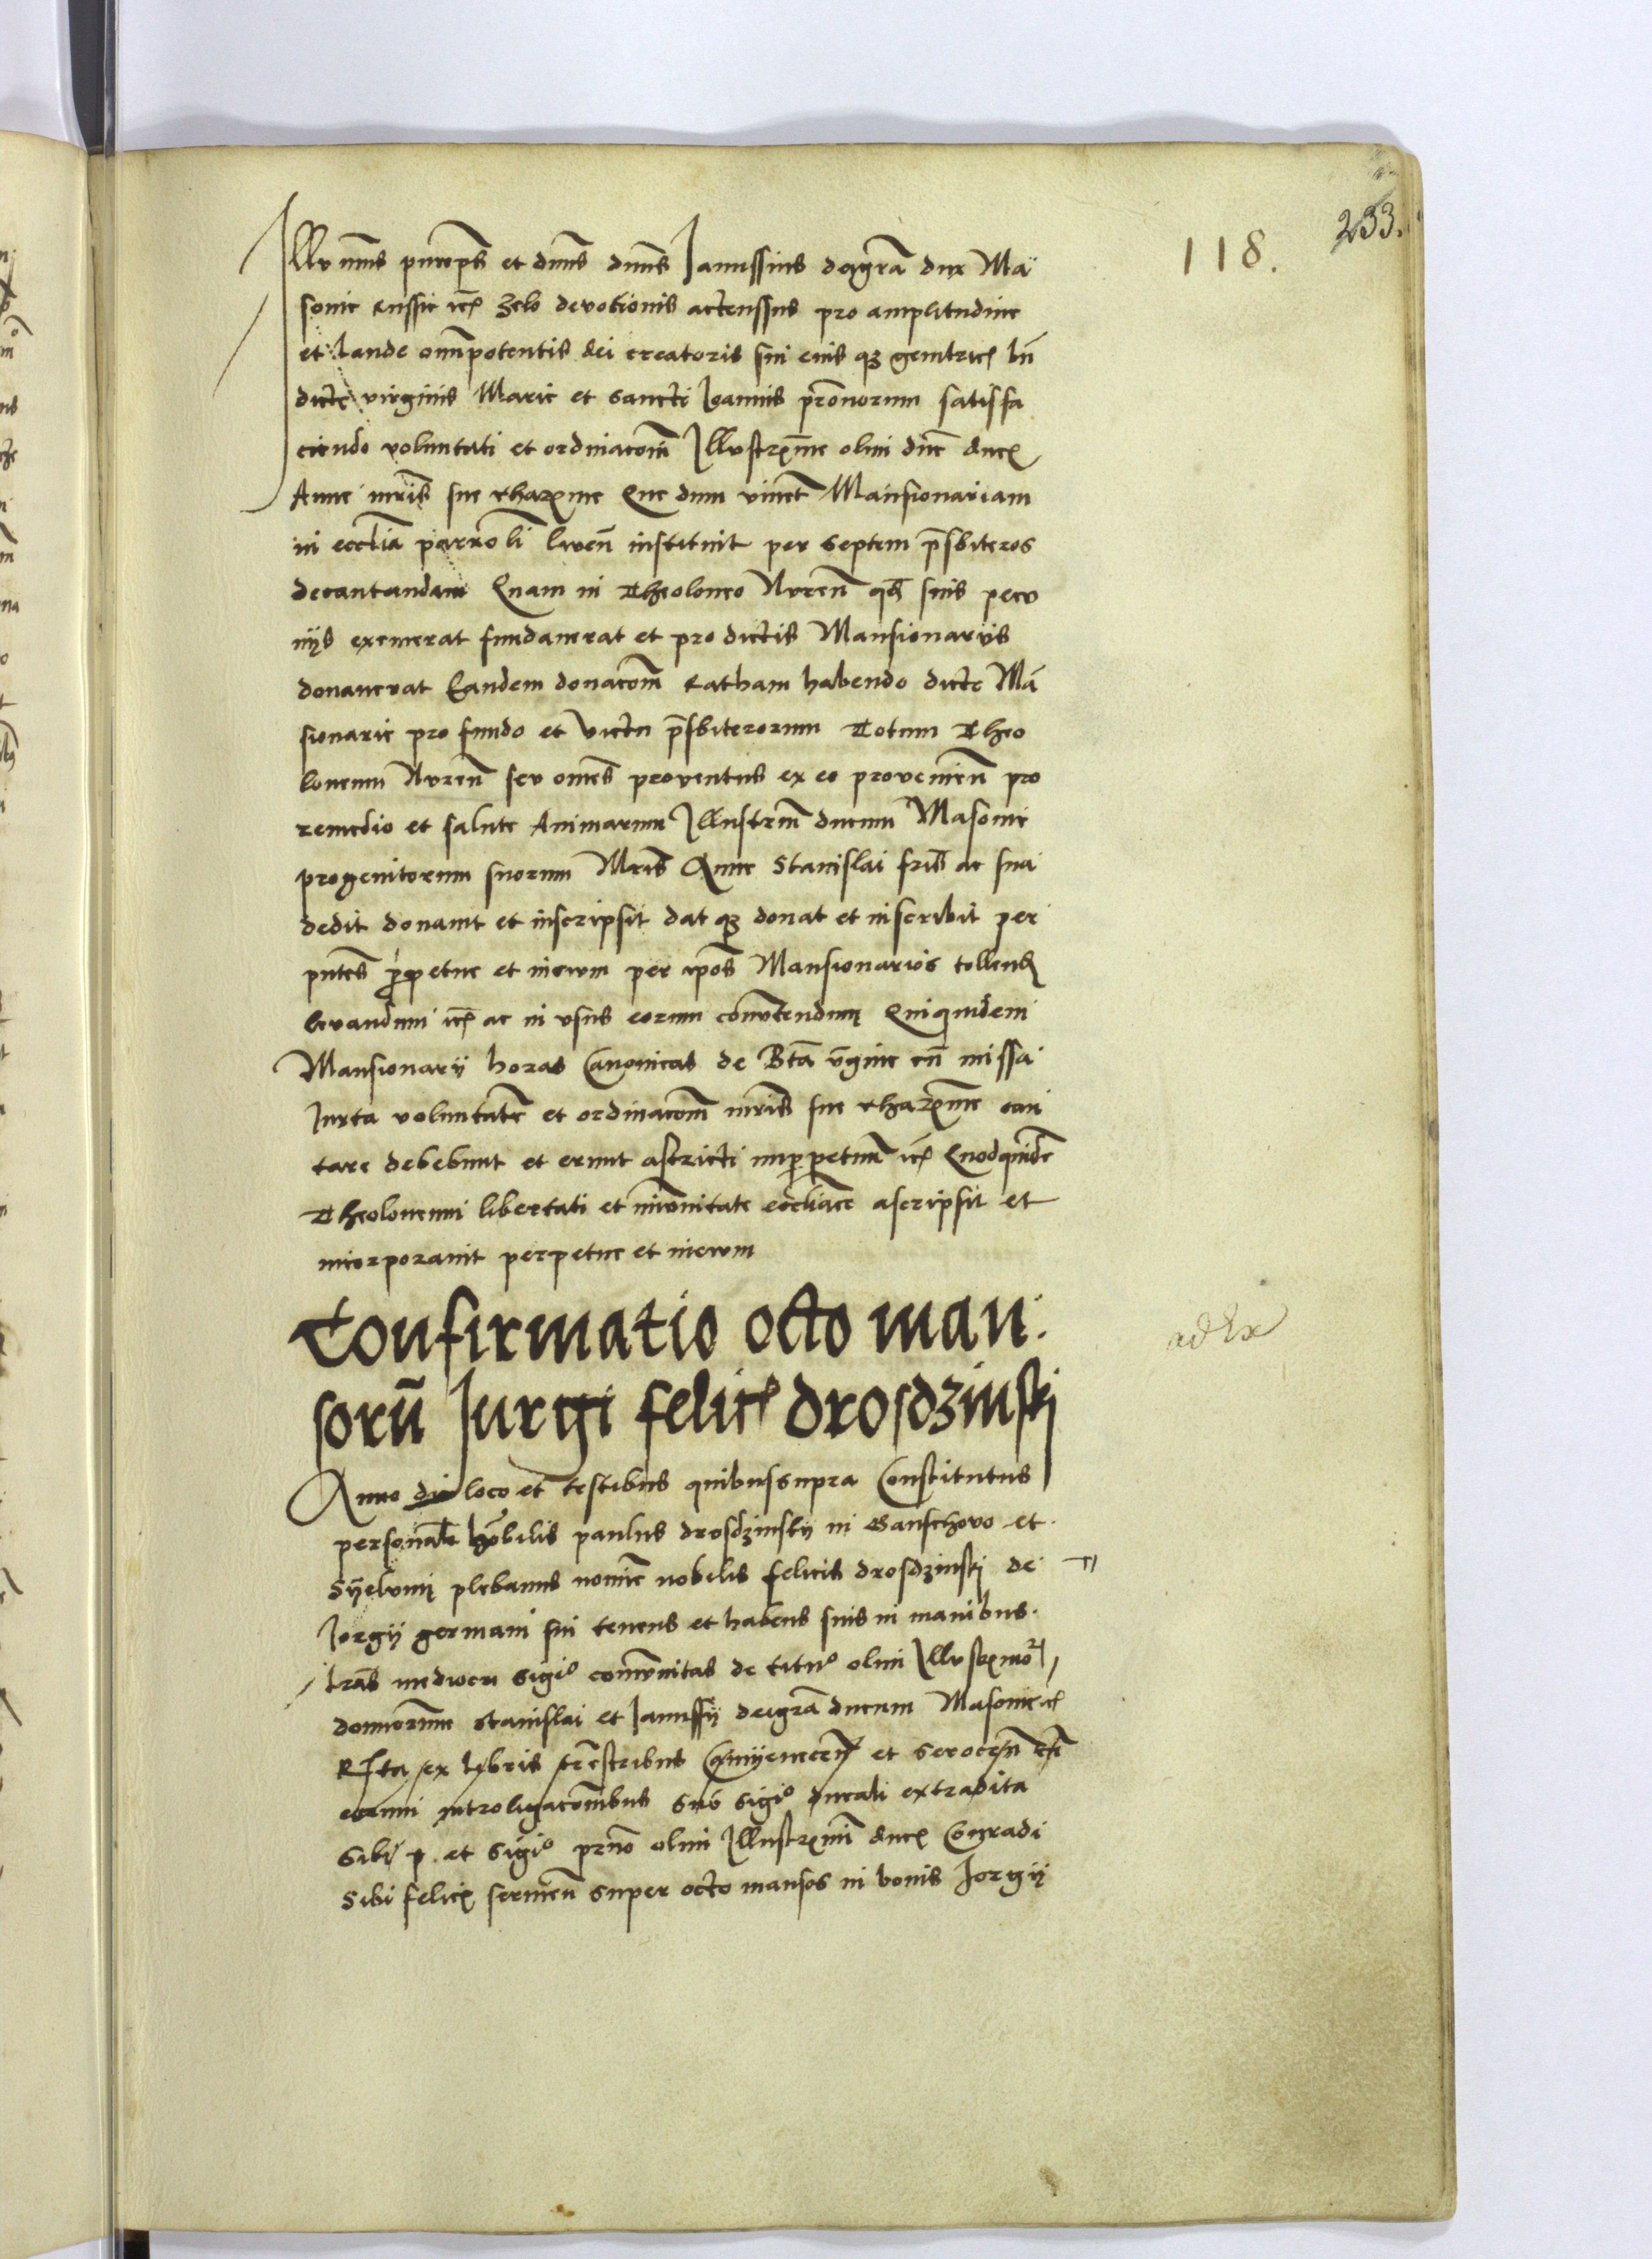 233.
118.
Illu mus princeps et dnus dnus Janussius dei gra dux Ma
sovie Russie etc zelo devotionis accenssus pro amplitudine
et laude omnipotentis dei creatoris sui eius q3 genitricis bn
dicte virginis Marie et sancti Joannis pronorum satisfa
ciendo voluntati et ordinaconi Illustrme olim dne ducis
Anne mris sue charme Que dum vivet Mansionariam
in ecclia parroli liven instituit per septem presbiteros
decantandam Quam in Theloneo Nuren qd suis pecu
niis exemerat fundaverat et pro dictis Mansionariis
donaverat Eandem donacom Ratham habendo dicte Ma
sionarie pro fundo et victu presbiterorum Totum Theo
loneum Nuren seu omes proventus ex eo provenien pro
remedio et salute Animarum Illustrm ducum Masovie
progenitorum suorum Mris Anne Stanislai fris ac sua
dedit donavit et inscripsit dat q3 donat et inscribit per
pntes perpetue et inevum per ipos Mansionarios tollend
levandum etc ac in usus eorum convtendum Quiquidem
Mansionarii horas Canonicas de Bta vgine cu missa
Juxta voluntate et ordinacom mris sue charme can
tare debebunt et erunt astricti imperpetuum etc Quodquide
Theoloneum libertati et imunitate eccliace ascripsit et
incorporavit perpetue et inevum
Confirmatio octo man
soru Jurgi felicis drosdzinski
Anno die loco et testibus quibus supra Constitutus
personale hobilis paulus drosdzinskij in Sanschovo et
Syelun plebanus nomie nobilis felicis drosdzinskj de
Jorgii germani sui tenens et habens suis in manibus
lras mediocri sigio comunitas de titulo olim Illustrmor
dominorum Stanislai et Janussij dei gra ducum Masovie etc
ex libris trestribus et serocen
eorum introligacombus sub sigio ducali extradita
sibi p et sigio prno olim Illustrmi ducis Conradi
Sibi felicis servien super octo mansos in bonis Jorgii